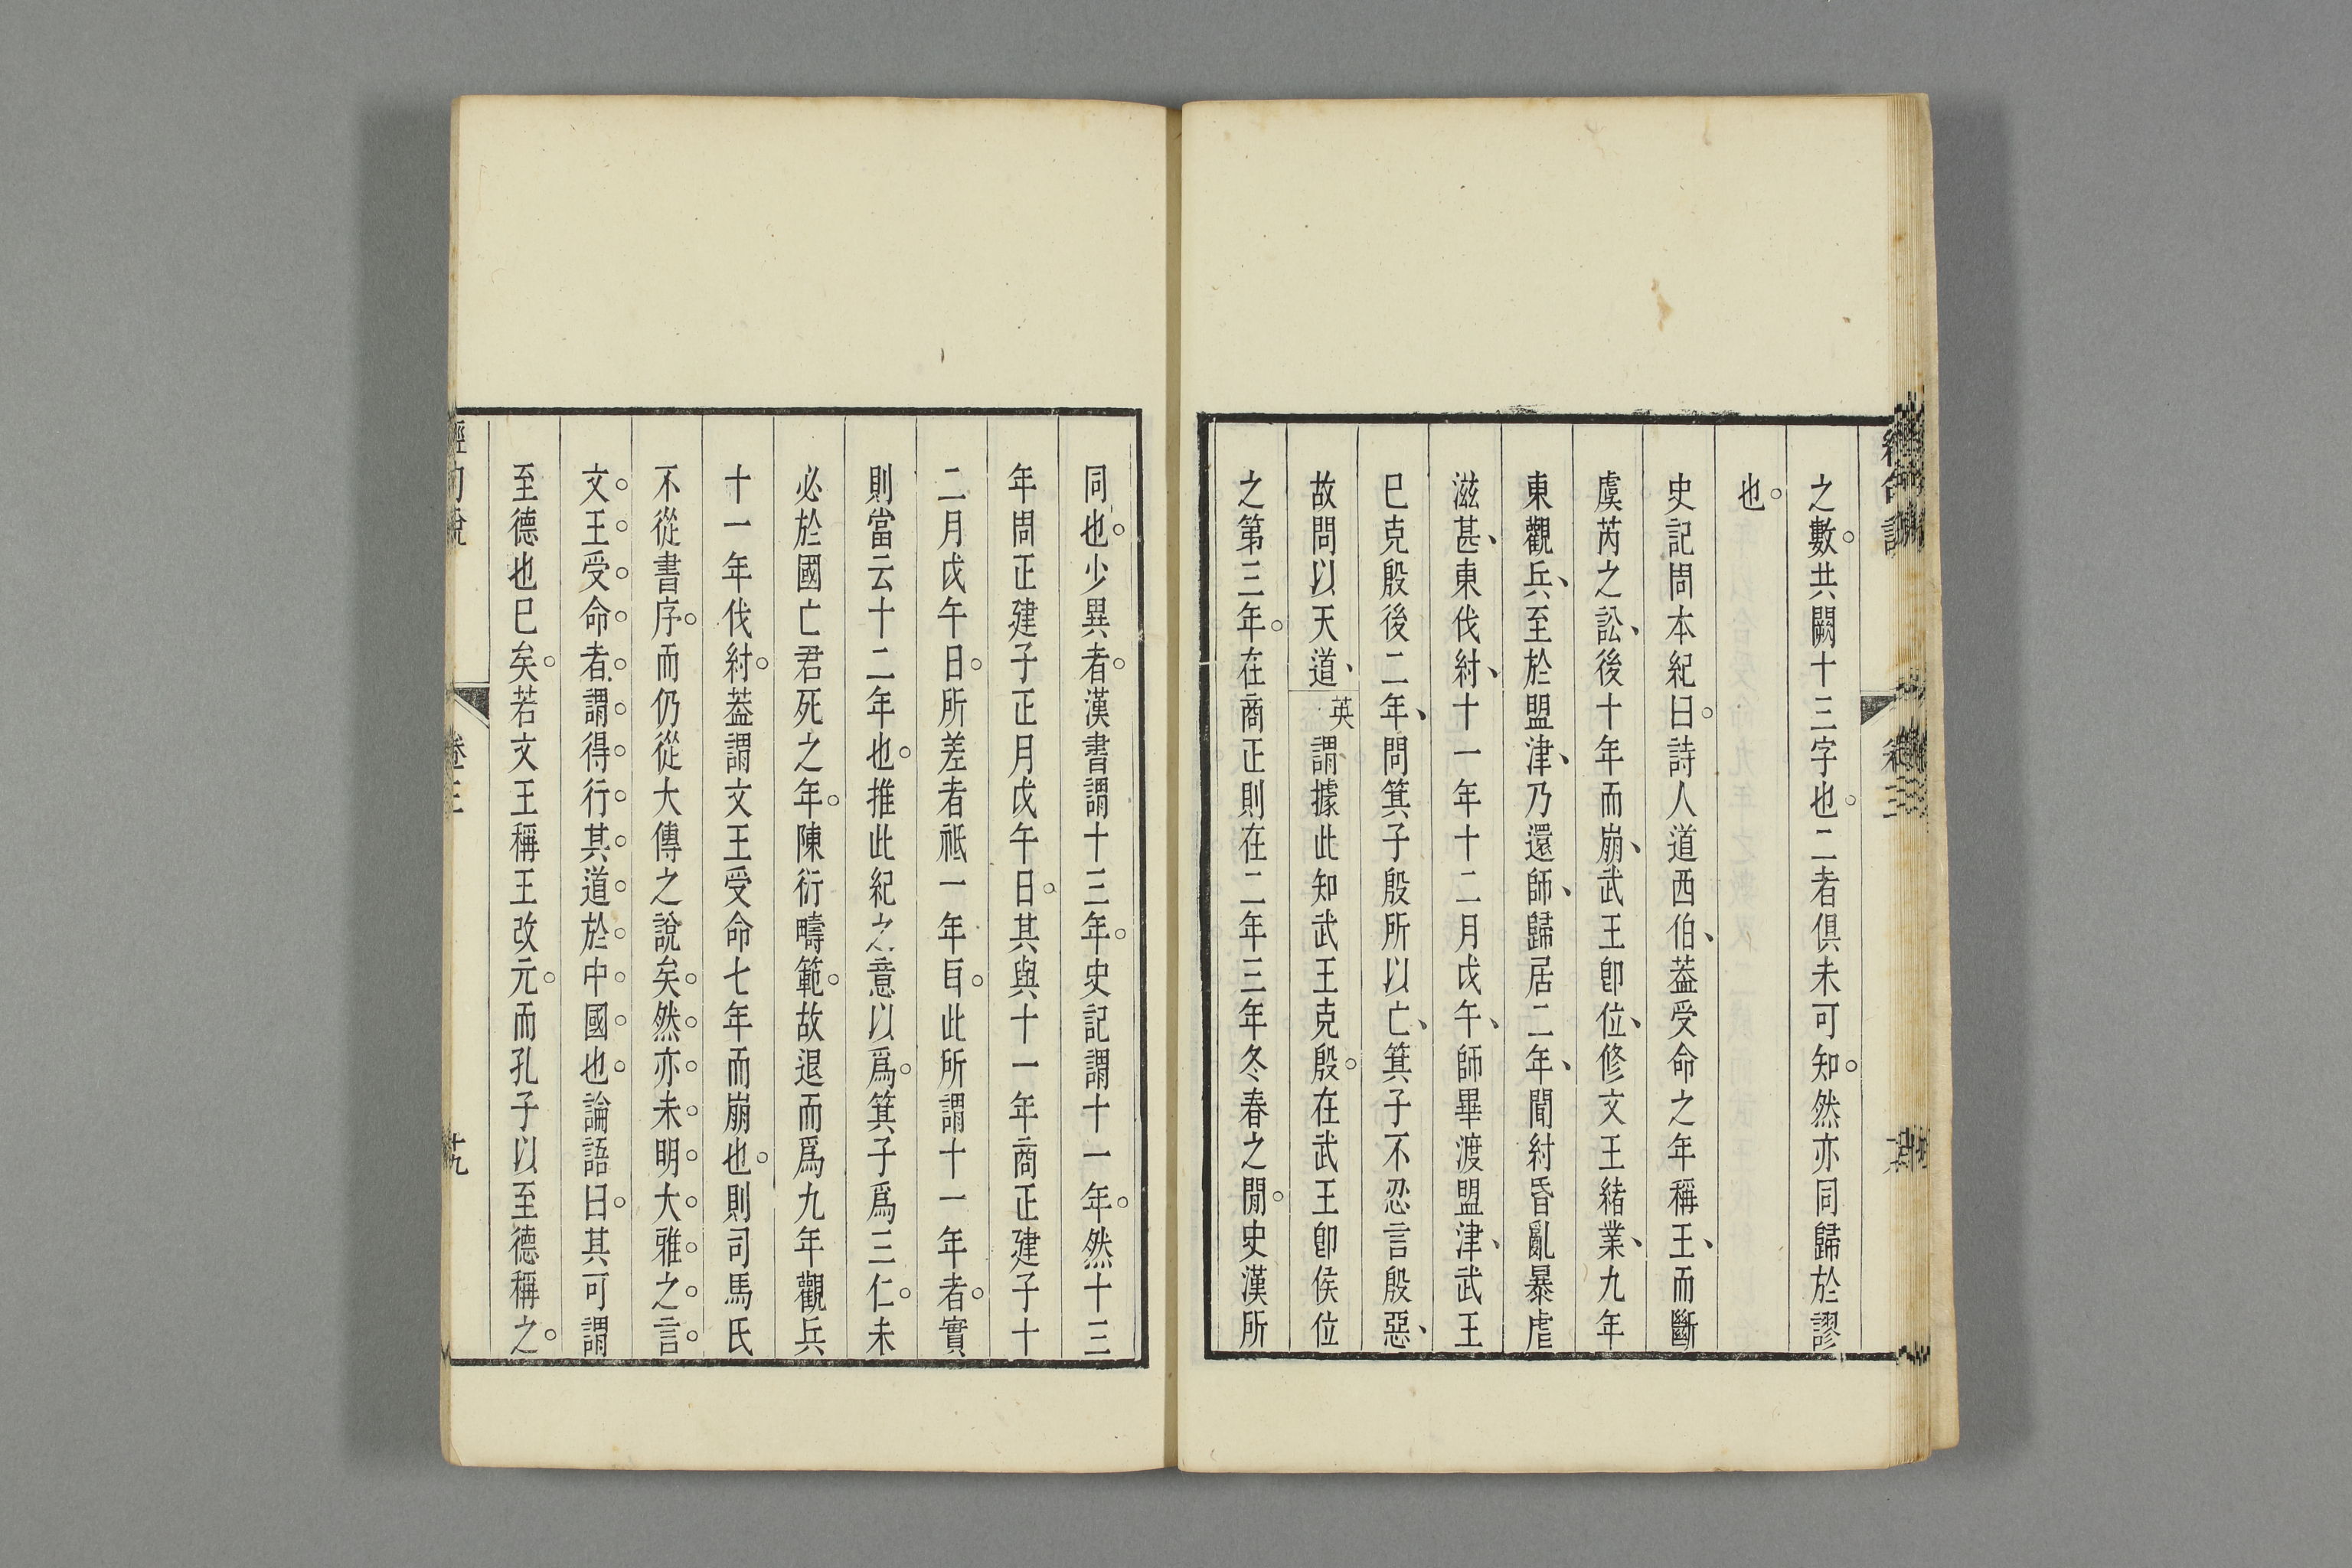 之數。共闕十三字也。二者俱未可知。然亦同歸於謬
也。
史記周本紀曰。詩人道西伯、蓋受命之年稱王、而斷
虞芮之訟、後十年而崩、武王卽位、修文王緒業、九年
東觀兵、至於盟津、乃還師、歸居二年、聞紂昏亂暴虐
滋甚、東伐紂、十一年十二月戊午、師畢渡盟津、武王
巳克殷後二年、問箕子殷所以亡、箕子不忍言殷惡、
故問以天道、英謂據此知武王克殷。在武王卽侯位
之第三年。在商正則在二年三年冬春之閒。史漢所
同也。少異者。漢書謂十三年。史記謂十一年。然十三
年周正建子正月戊午日。其與十一年商正建子十
二月戊午日。所差者祗一年㠯。此所謂十一年者。實
則當云十二年也。推此紀之意以爲。箕子爲三仁。未
必於國亡君死之年。陳衍疇範。故退而爲九年觀兵
十一年伐紂。蓋謂文王受命七年而崩也。則司馬氏
不從書序。而仍從大傳之說矣。然。亦。未。明。大。雅。之。言。
文。王。受。命。者。謂。得。行。其。道。於。中。國。也。論語曰。其可謂
至德也巳矣。若文王稱王改元。而孔子以至德稱之。
卷三